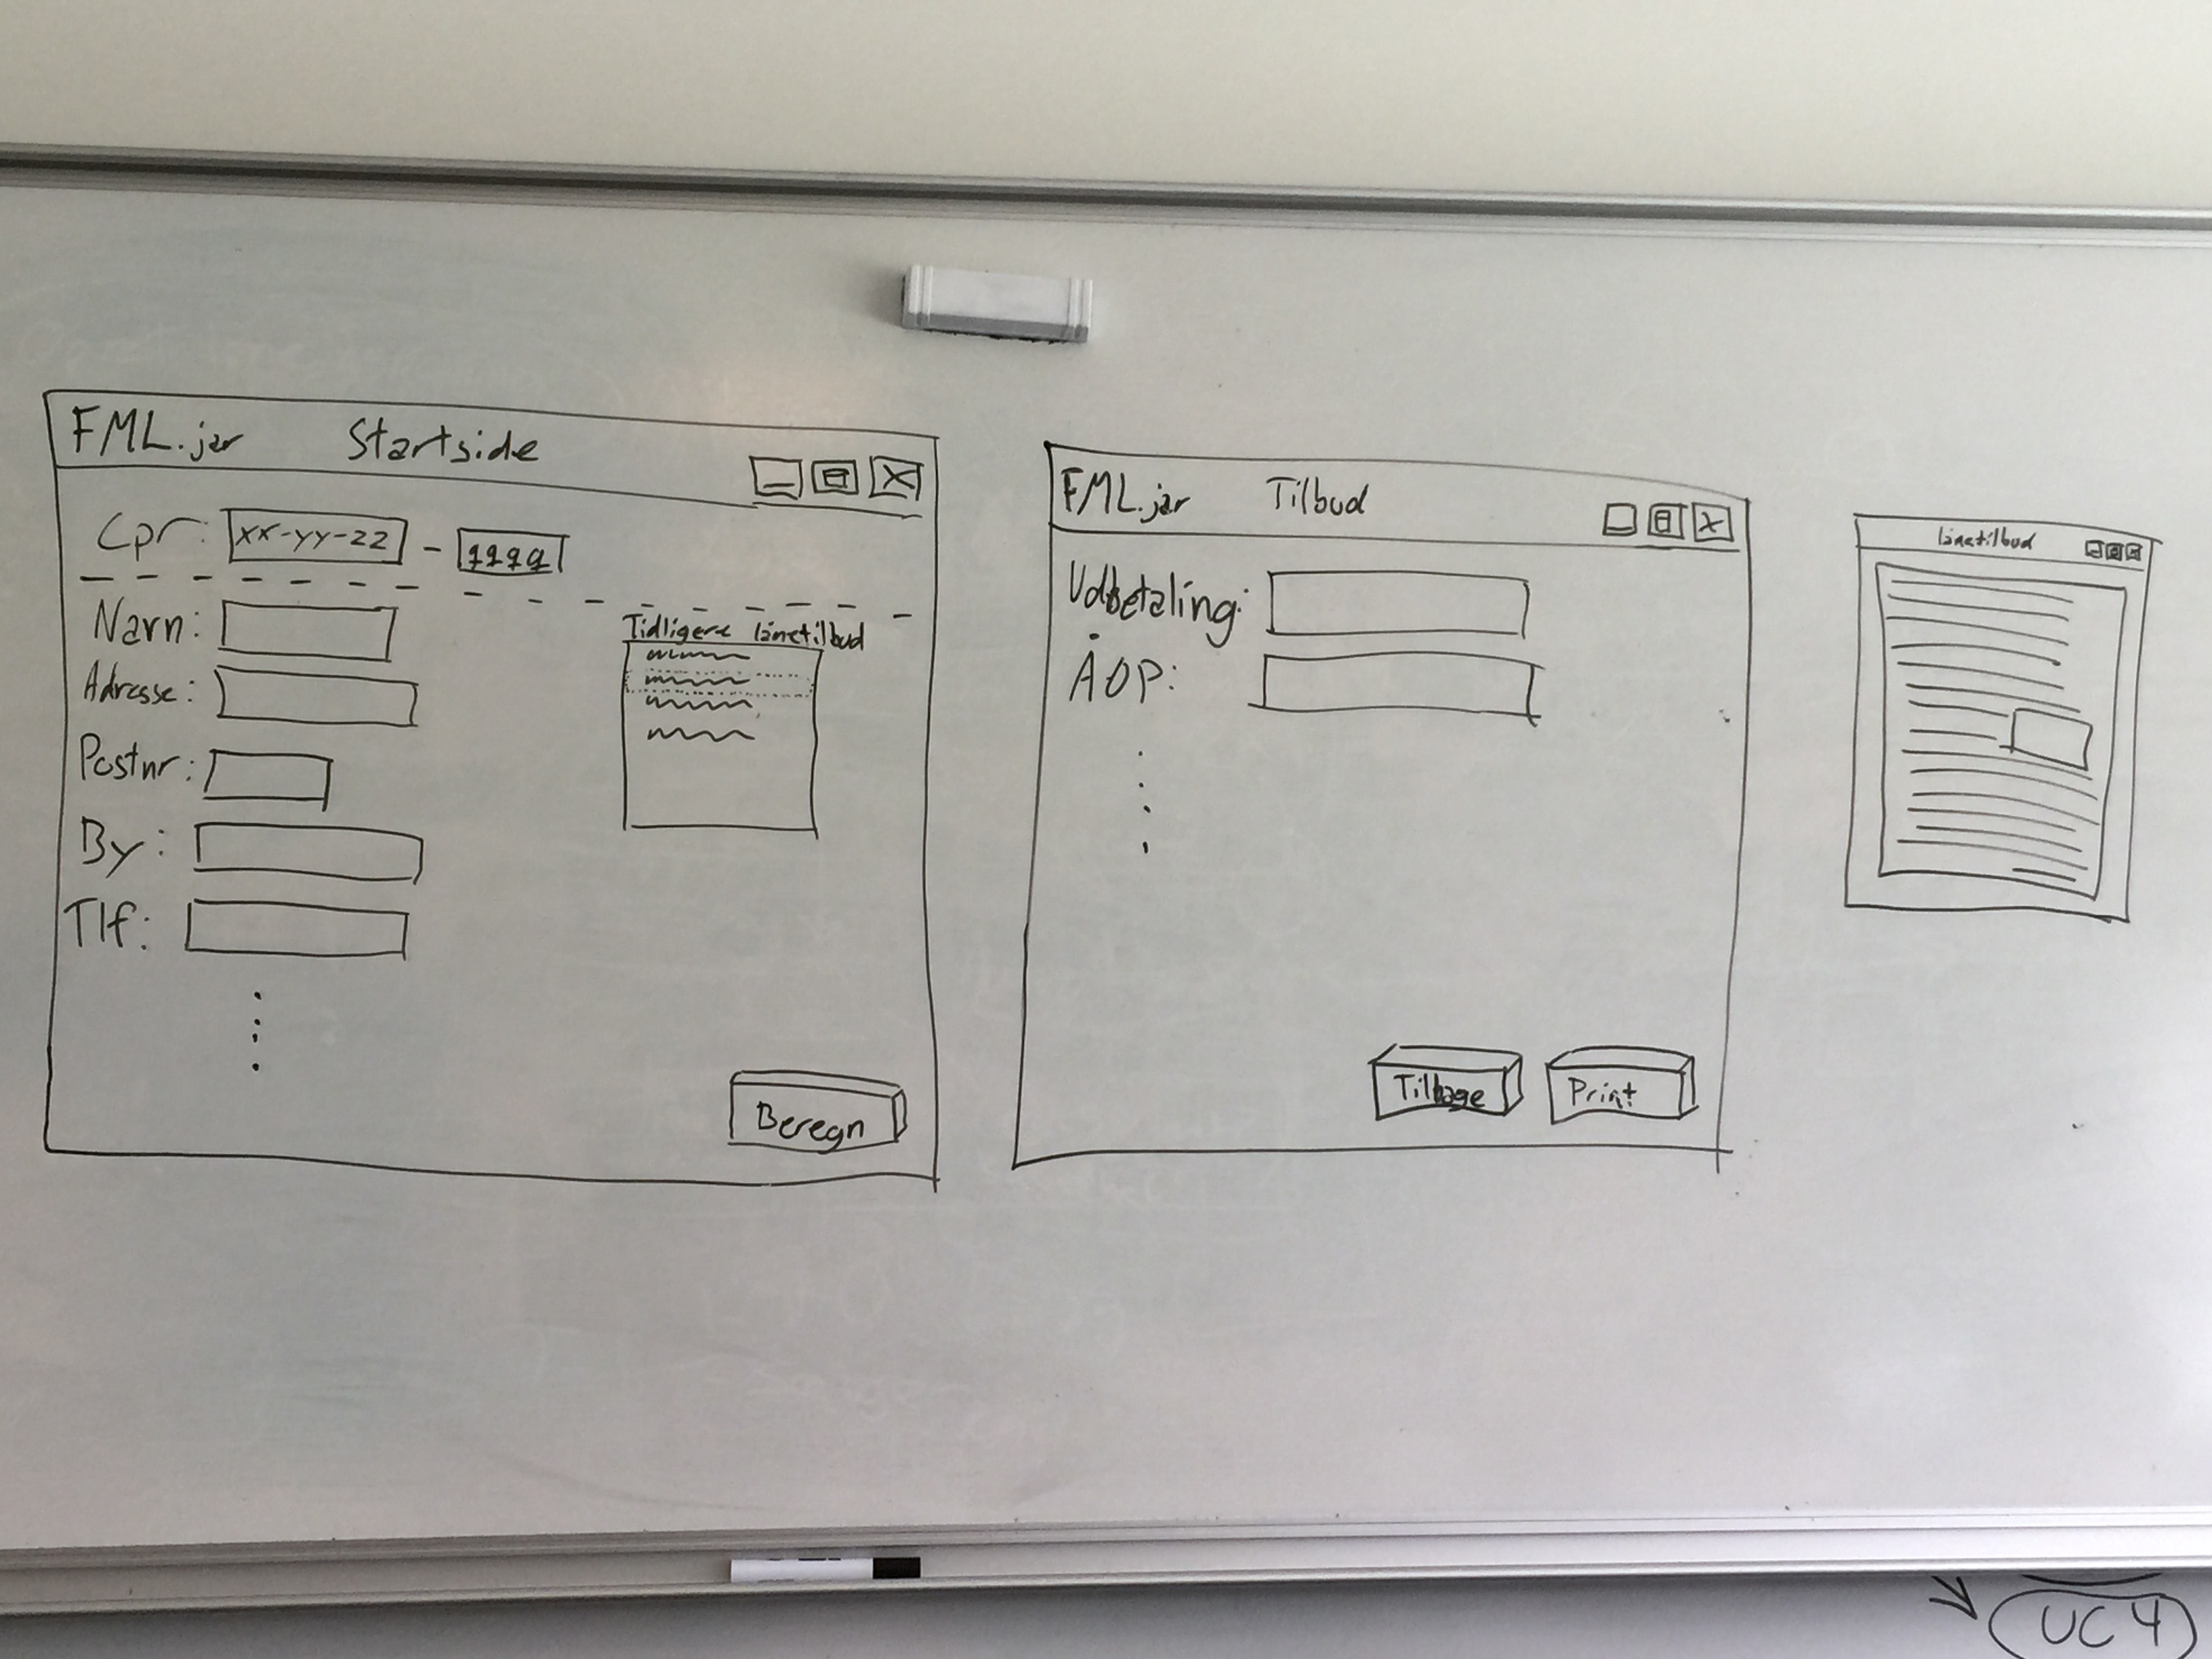 FML.jar Startside
Cpr: xx-yy-zz - qqqq
Navn:
Adresse:
Postnr:
By:
Tlf:
Tidligere lånetilbud
Beregn
FML.jar Tilbud
Udbetaling:
ÅOP:
Tilbage
Print
lånetilbud
UC4